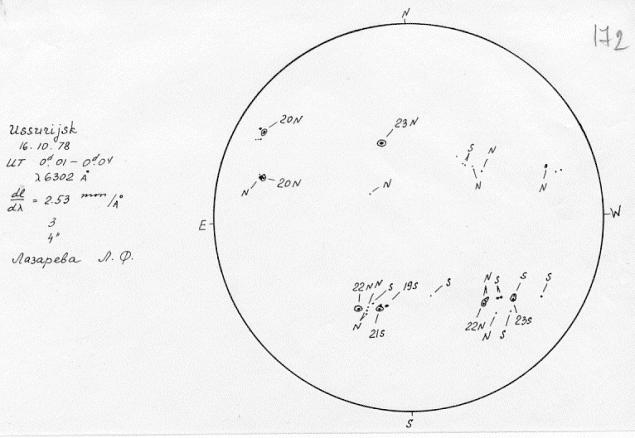 172
N
Ussurijsk
16.10.78
UT 0ᵈ.01 – 0ᵈ.04
λ 6302 Å
dl/dλ = 2.53 mm/Å
3
4"
Лазарева Л. Ф.
20N
23N
S N
N
N
N 20N
N
E
W
22N N N S 19S
S
N
21S
N S S S
22N N S 23S
S